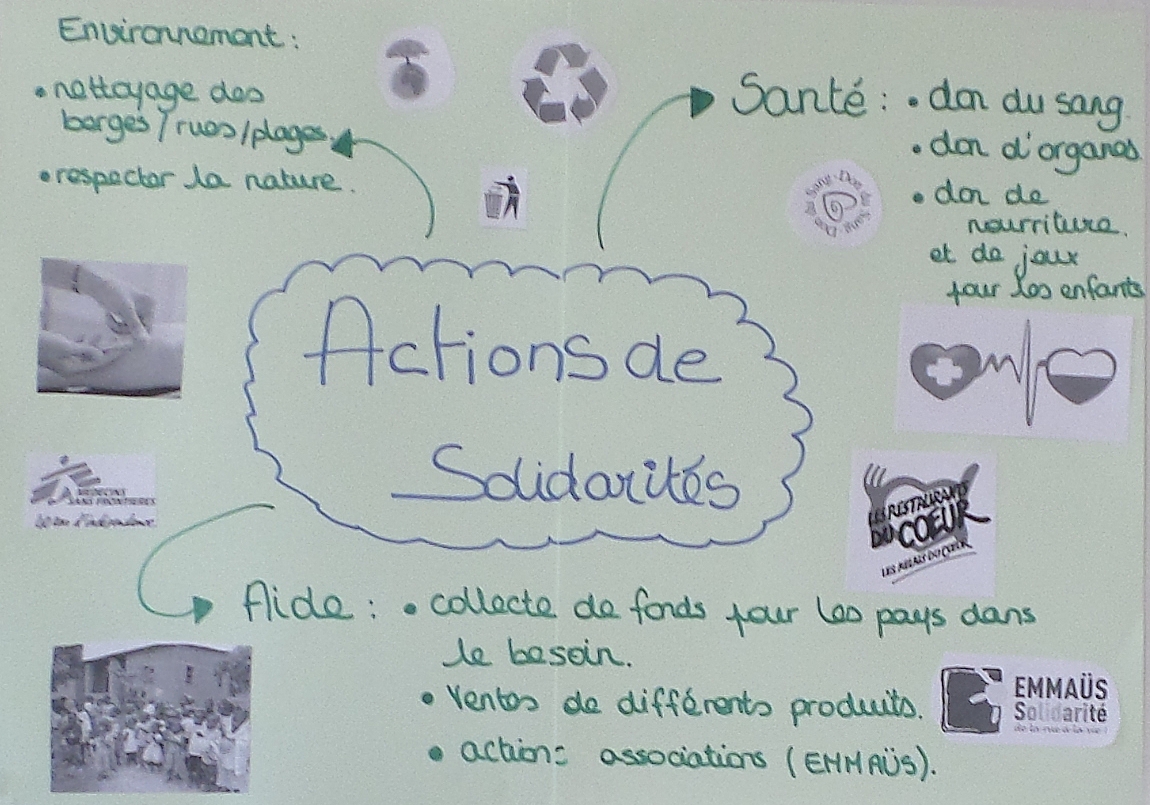 Environnement :
• nettoyage des
berges / rues / plages.
• respecter la nature.
Santé : • don du sang.
• don d'organes
• don de
nourriture.
et de jeux
pour les enfants
Don du Sang · Don du Sang ·
Actions de
Solidarités
MEDECINS
SANS FRONTIERES
LES RESTAURANTS
DU COEUR
LES RELAIS DU CŒUR
Aide : • collecte de fonds pour les pays dans
le besoin.
• Ventes de différents produits.
• action : associations (EMMAÜS).
EMMAÜS
Solidarité
de la rue à la vie !